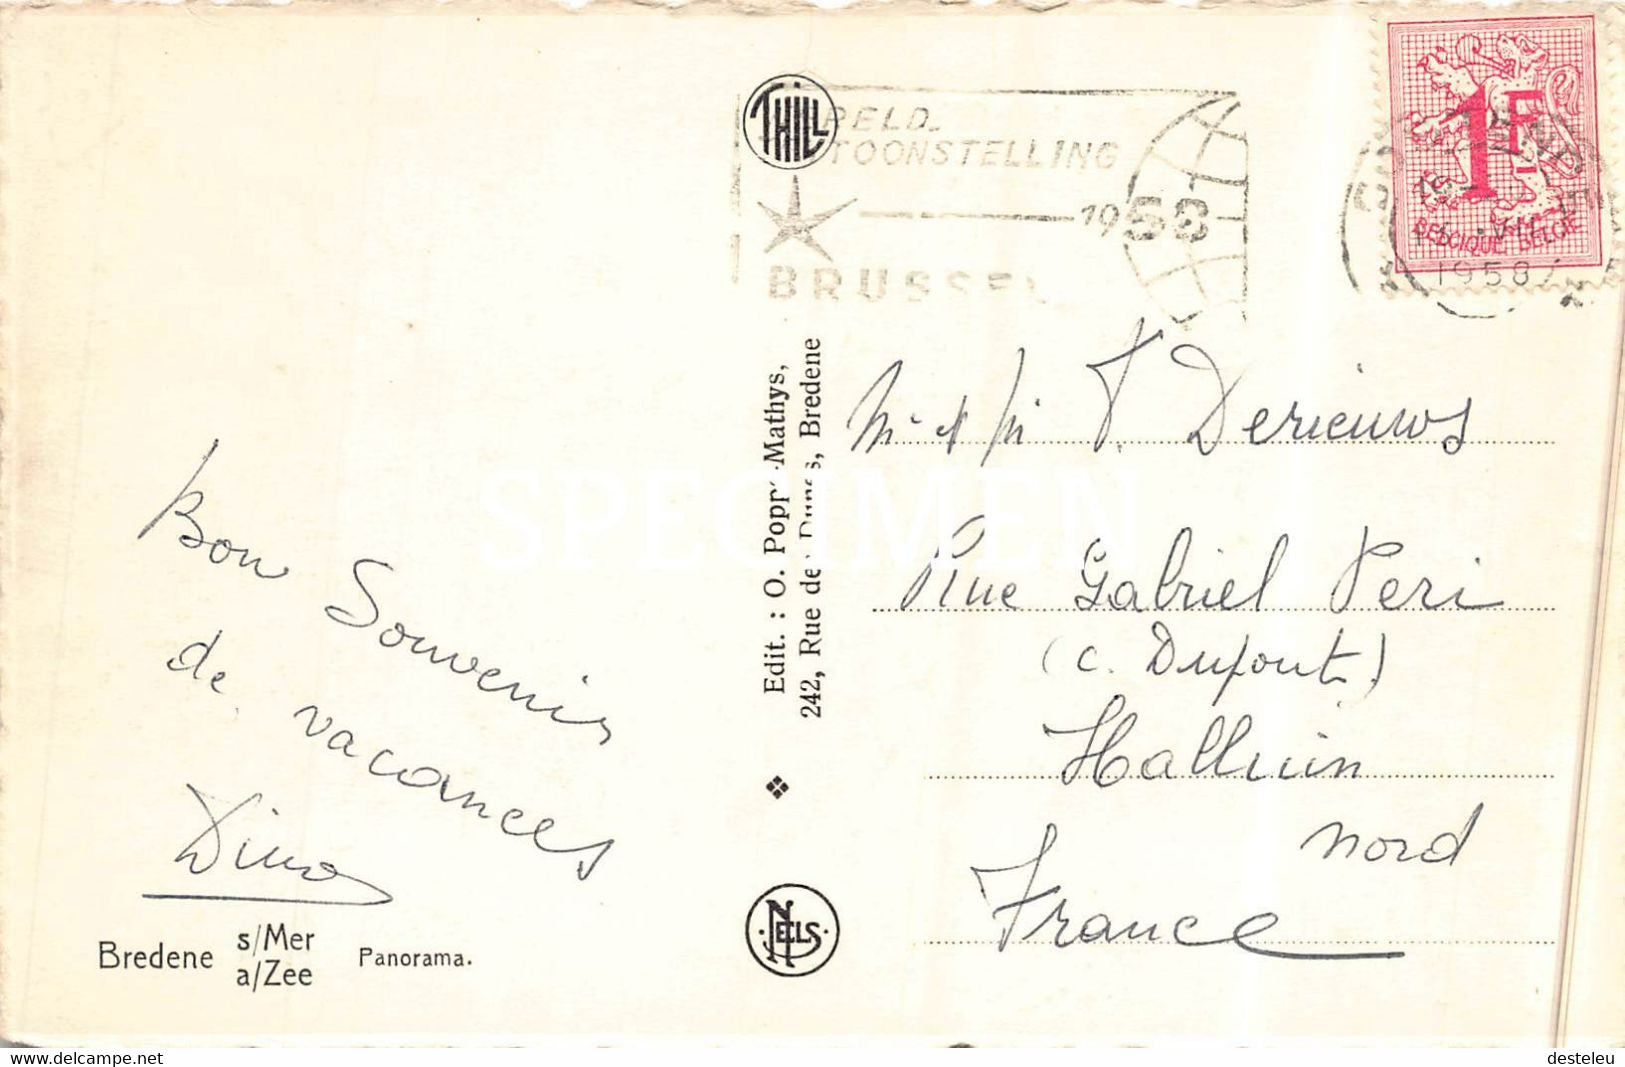 THILL
RELD-
TOONSTELLING
1958
BRUSSEL
1F
BELGIQUE BELGIE
1958
Edit. : O. Mathys,
242, Rue des Dunes, Bredene
Bon Souvenir
de vacances
Dino
T. Derieuws
Rue Gabriel Peri
(C. Dupont)
Halluin
Nord
France
NELS
Bredene s/Mer
a/Zee
Panorama.
SPECIMEN
www.delcampe.net
desteleu